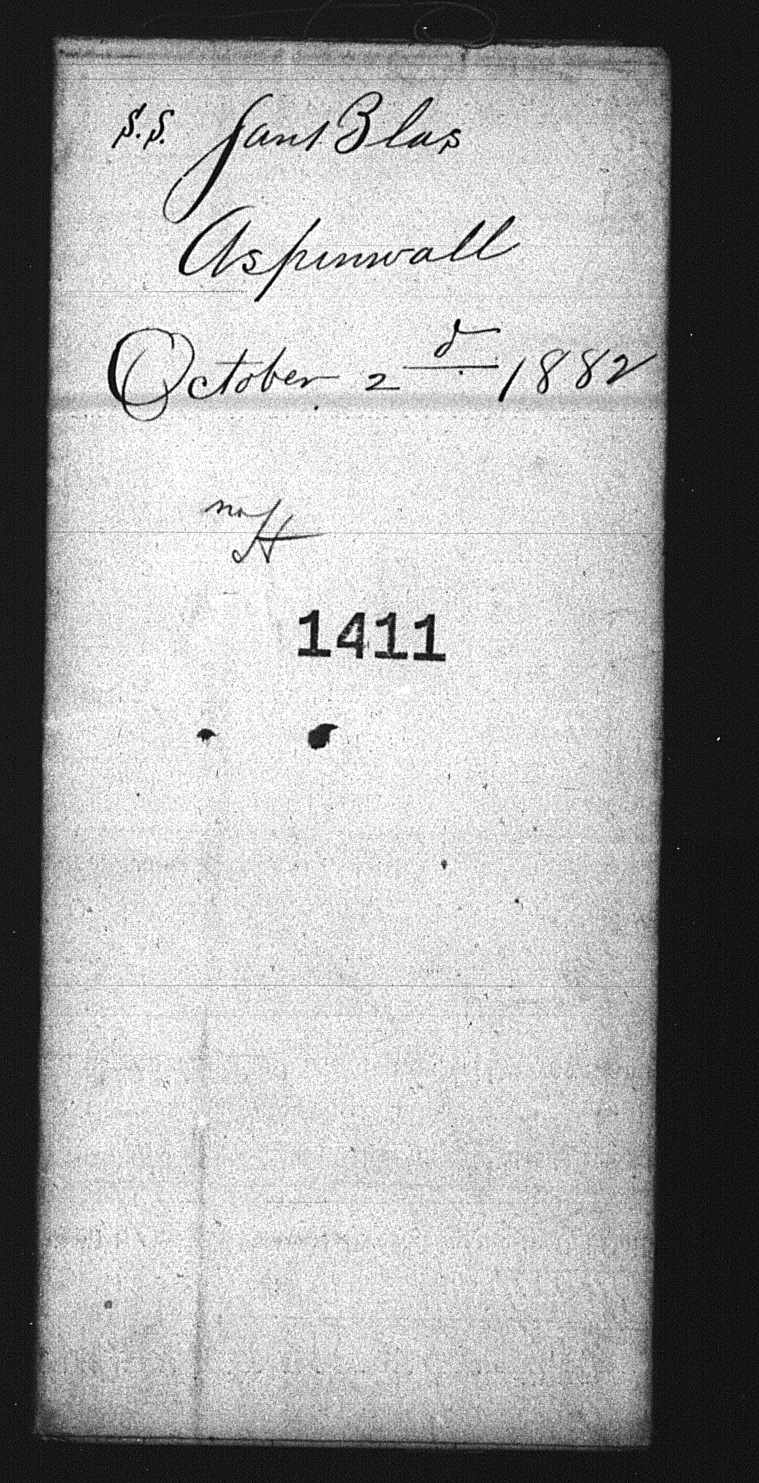 S.S. Sant Blas
Aspinwall
October 2d 1882
1411